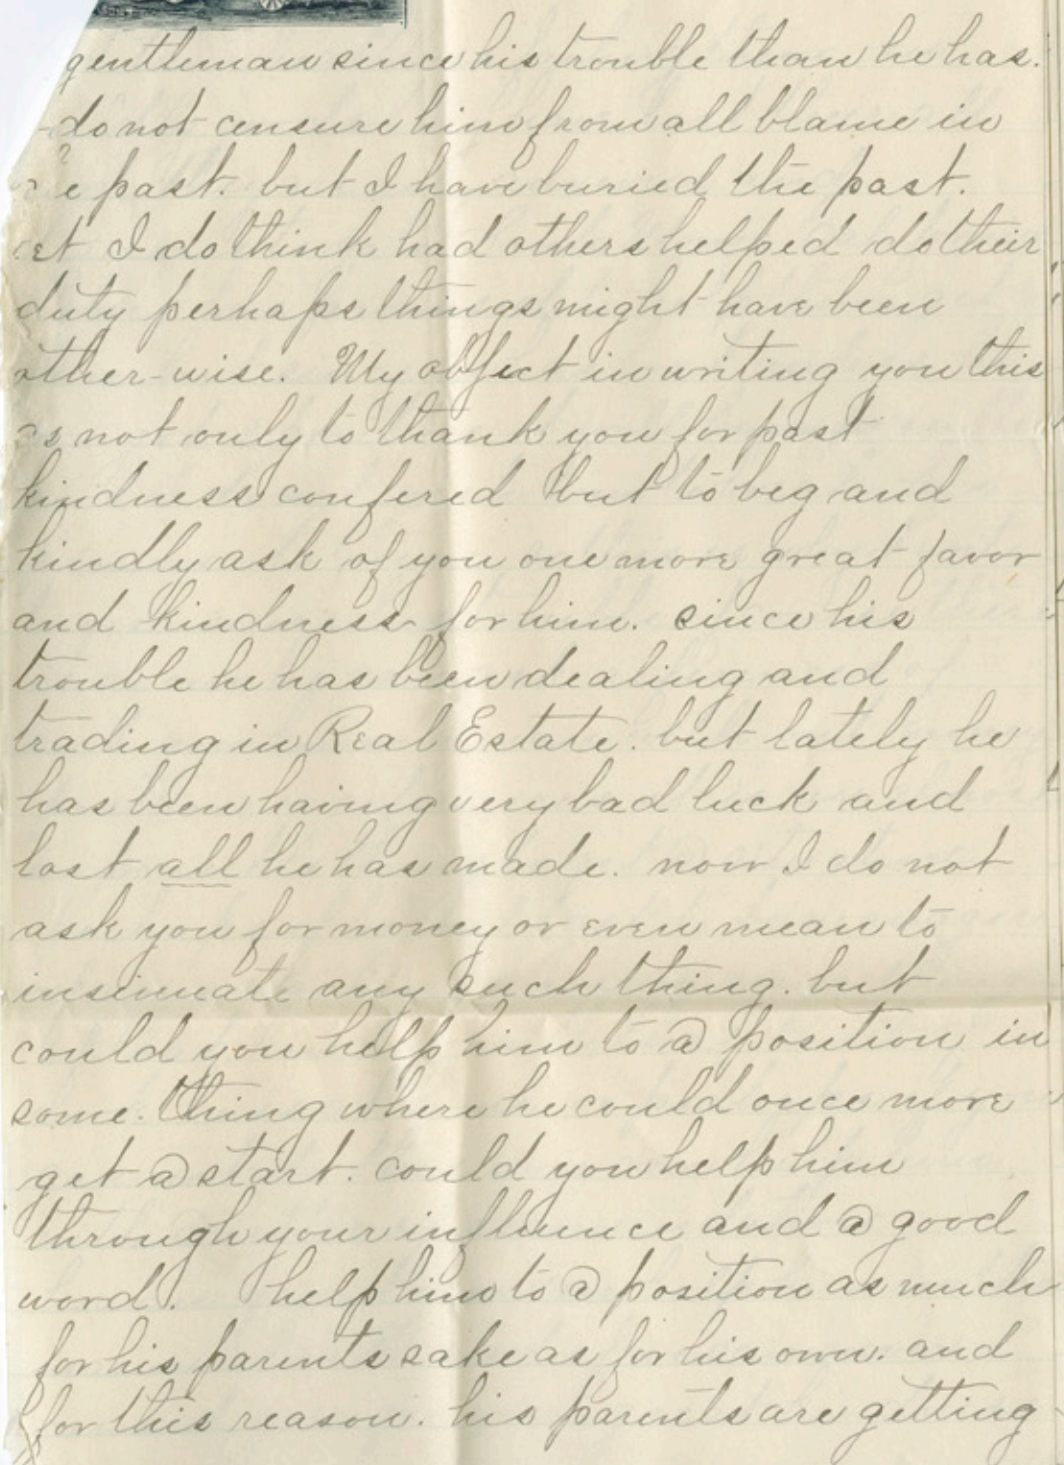 gentleman since his trouble than he has.
do not censure him from all blame in
e past. but I have buried the past.
I do think had others helped do their
duty perhaps things might have been
other-wise. My object in writing you this
is not only to thank you for past
kindness confered but to beg and
kindly ask of you one more great favor
and kindness for him. since his
trouble he has been dealing and
trading in Real Estate. but lately he
has been having very bad luck and
lost all he has made. now I do not
ask you for money or even mean to
insinuate any such thing. but
could you help him to a position in
some-thing where he could once more
get a start. could you help him
through your influence and a good
word. help him to a position as much
for his parents sake as for his own. and
for this reason. his parents are getting